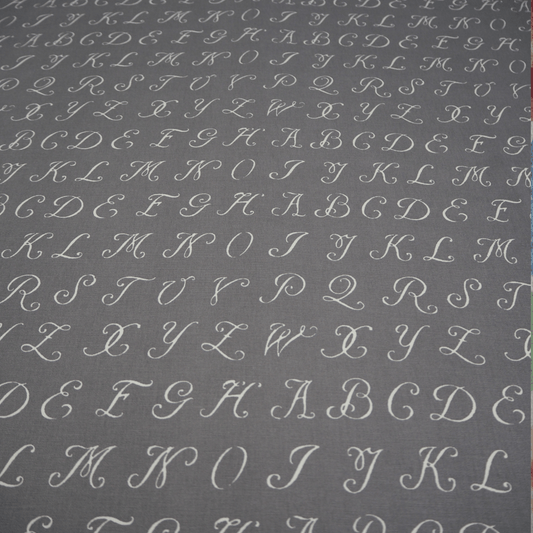 J K L M N O I J K L M N O I
H A B C D E F G H A B C D E F G H
I J K L M N O I J K L M N O
P Q R S T U V P Q R S T U V
X Y Z X Y Z W X Y Z X Y Z
B C D E F G H A B C D E F G
J K L M N O I J K L M N
B C D E F G H A B C D E F
K L M N O I J K L M
R S T U V P Q R S T
Y Z X Y Z W X Y Z X
D E F G H A B C D E
L M N O I J K L
E F G H A B C D